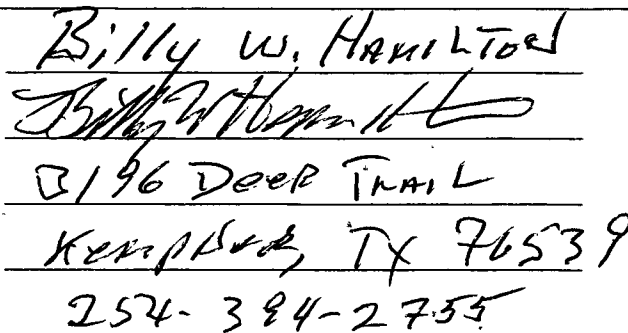 Billy W. Hamilton
Billy W Hamilton
3196 Deer Trail
Kempner, TX 76539
254-394-2755